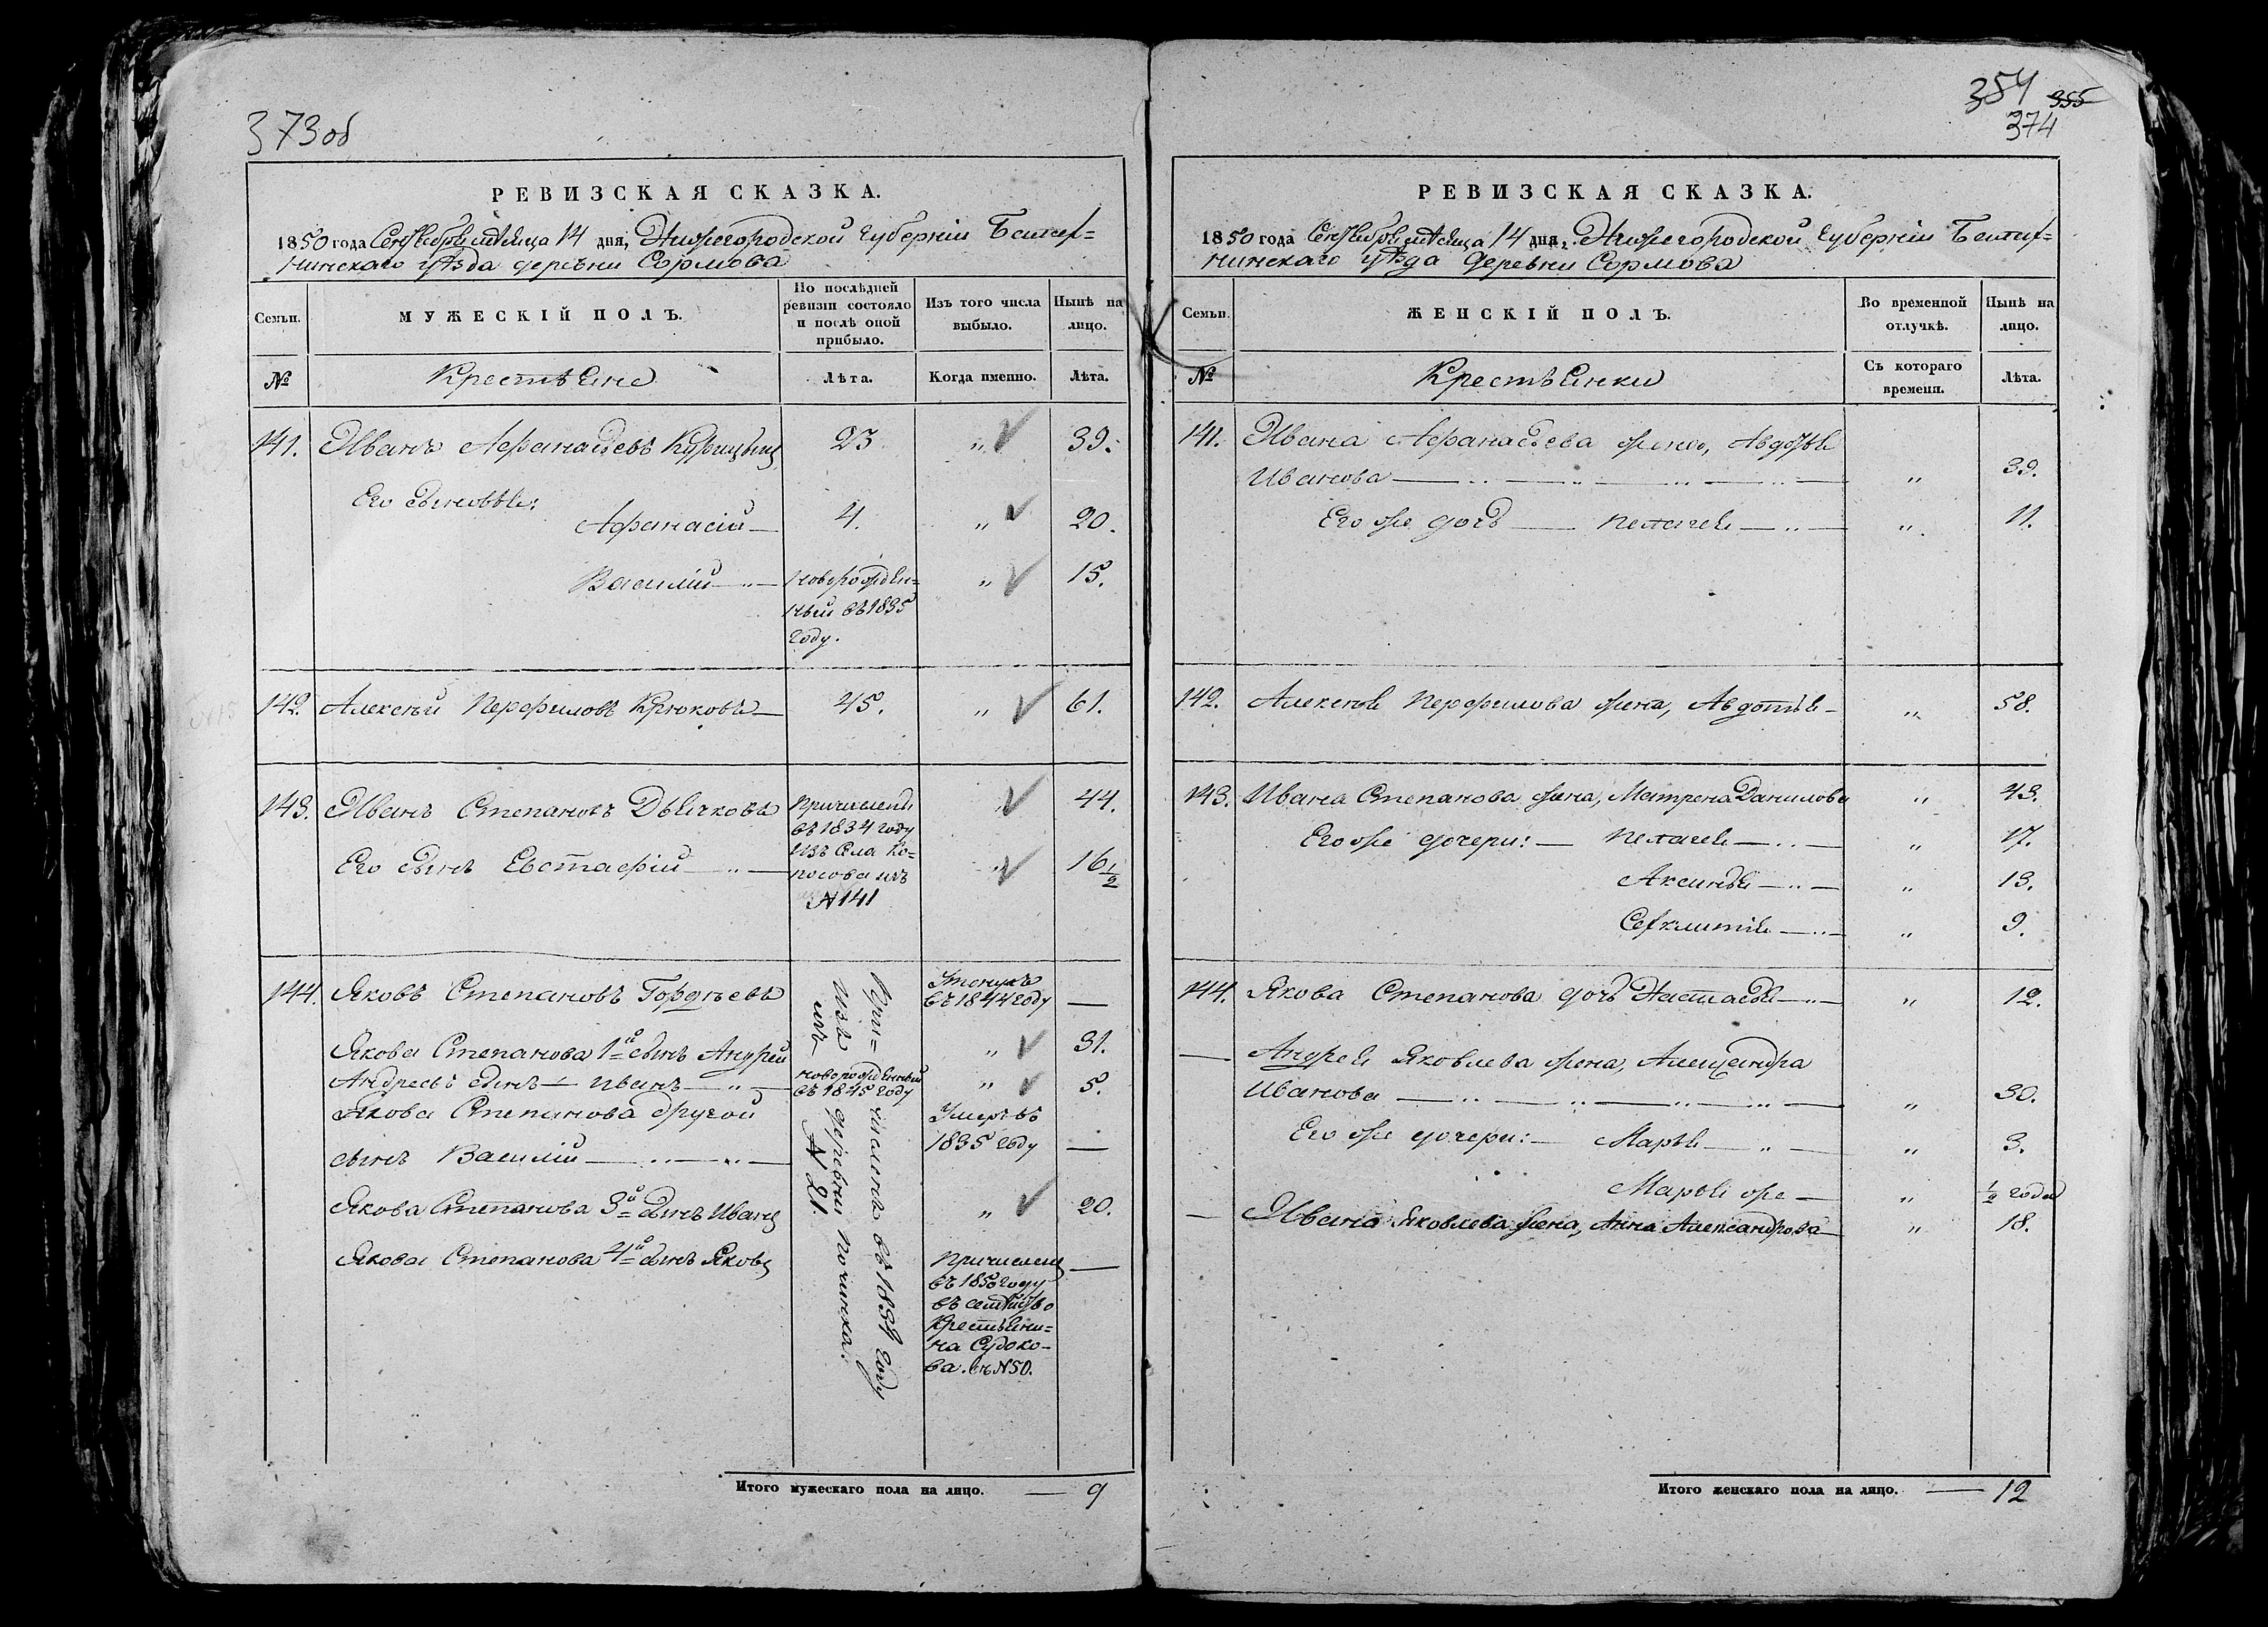 373об
РЕВИЗСКАЯ СКАЗКА.
1850 года Сентября мѣсяца 14 дня, Нижегородской Губерніи
нинскаго уѣзда деревни Сормова
Семьи.
МУЖЕСКІЙ ПОЛЪ.
По послѣдней
ревизіи состояло
и послѣ оной
прибыло.
Изъ того числа
выбыло.
Нынѣ на
лицо.
№
Крестьяне
Лѣта.
Когда именно.
Лѣта.
141. Иванъ Афанасьевъ Курицынъ 23 „ 39.
Его сыновья:
Афанасій — 4. „ 20.
Василій — „ — новорожден= „ 15.
ный въ 1835
году.
142. Алексѣй Перфиловъ Крюковъ — 45. „ 61.
143. Иванъ Степановъ Дьячковъ Причисленъ „ 44.
въ 1834 году
изъ Села Ко=
Его сынъ Евстафій — „ — посова изъ „ 16 1/2
№ 141
144. Яковъ Степановъ Гордѣевъ
Причисленъ въ 1834 году
изъ деревни Починка.
изъ № 21.
Утонулъ
въ 1844 году —
Якова Степанова 1й сынъ Андрей „ 31.
Андреевъ сынъ — Иванъ — „ — новорожденный „ 5.
въ 1845 году
Якова Степанова другой Умеръ въ
сынъ Василій — „ — „ — 1835 году —
Якова Степанова 3й сынъ Иванъ „ 20.
Якова Степанова 4й сынъ Яковъ Причисленъ —
въ 1850 году
въ семейство
Крестьяни=
на Судоко-
ва. въ № 50.
Итого мужескаго пола на лицо. — 9
354 355
374
РЕВИЗСКАЯ СКАЗКА.
1850 года Сентября мѣсяца 14 дня, Нижегородской Губерніи
нинскаго уѣзда деревни Сормова
Семьи.
ЖЕНСКІЙ ПОЛЪ.
Во временной
отлучкѣ.
Нынѣ на
лицо.
№
Крестьянки
Съ котораго
времени.
Лѣта.
141. Ивана Афанасьева жена, Авдотья
Иванова — „ — „ — „ — „ — „ 39.
Его же дочь — Пелагея — „ — „ 11.
142. Алексѣя Перфилова жена, Авдотья — „ 58.
143. Ивана Степанова жена, Матрена Данилова „ 43.
Его же дочери: — Пелагея — „ — „ 17.
Аксинья — „ — „ 13.
Секлитія — „ — „ 9.
144. Якова Степанова дочь Настасья — „ — „ 12.
— Андрея Яковлева жена, Александра
Иванова — „ — „ — „ — „ — „ 30.
Его же дочери: — Марья — „ — „ 3.
Марья же — „ 1/2 года
— Ивана Яковлева жена, Анна Александрова — „ 18.
Итого женскаго пола на лицо. — 12